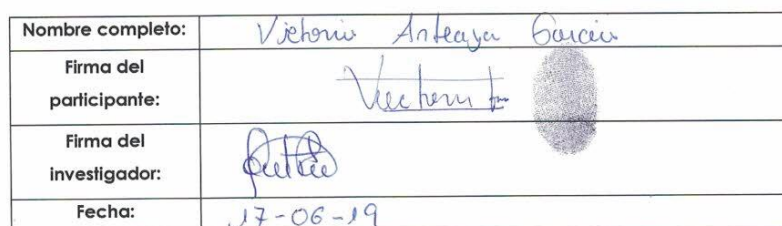 Nombre completo: Victoria Arteaga Garcia
Firma del
participante:
Firma del
investigador:
Fecha: 17-06-19